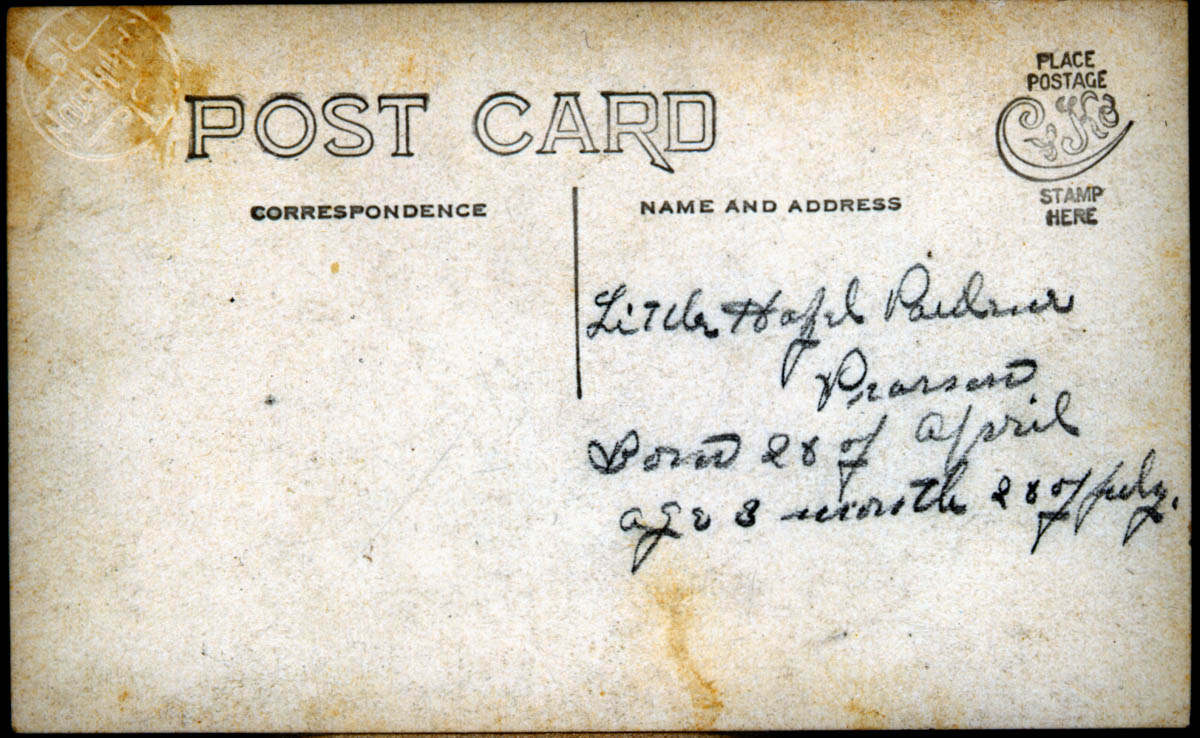 POST CARD
CORRESPONDENCE
NAME AND ADDRESS
PLACE
POSTAGE
STAMP
HERE
Little Hazel Pauline
Pearson
Born 28 of April
age 3 month 28 of July.